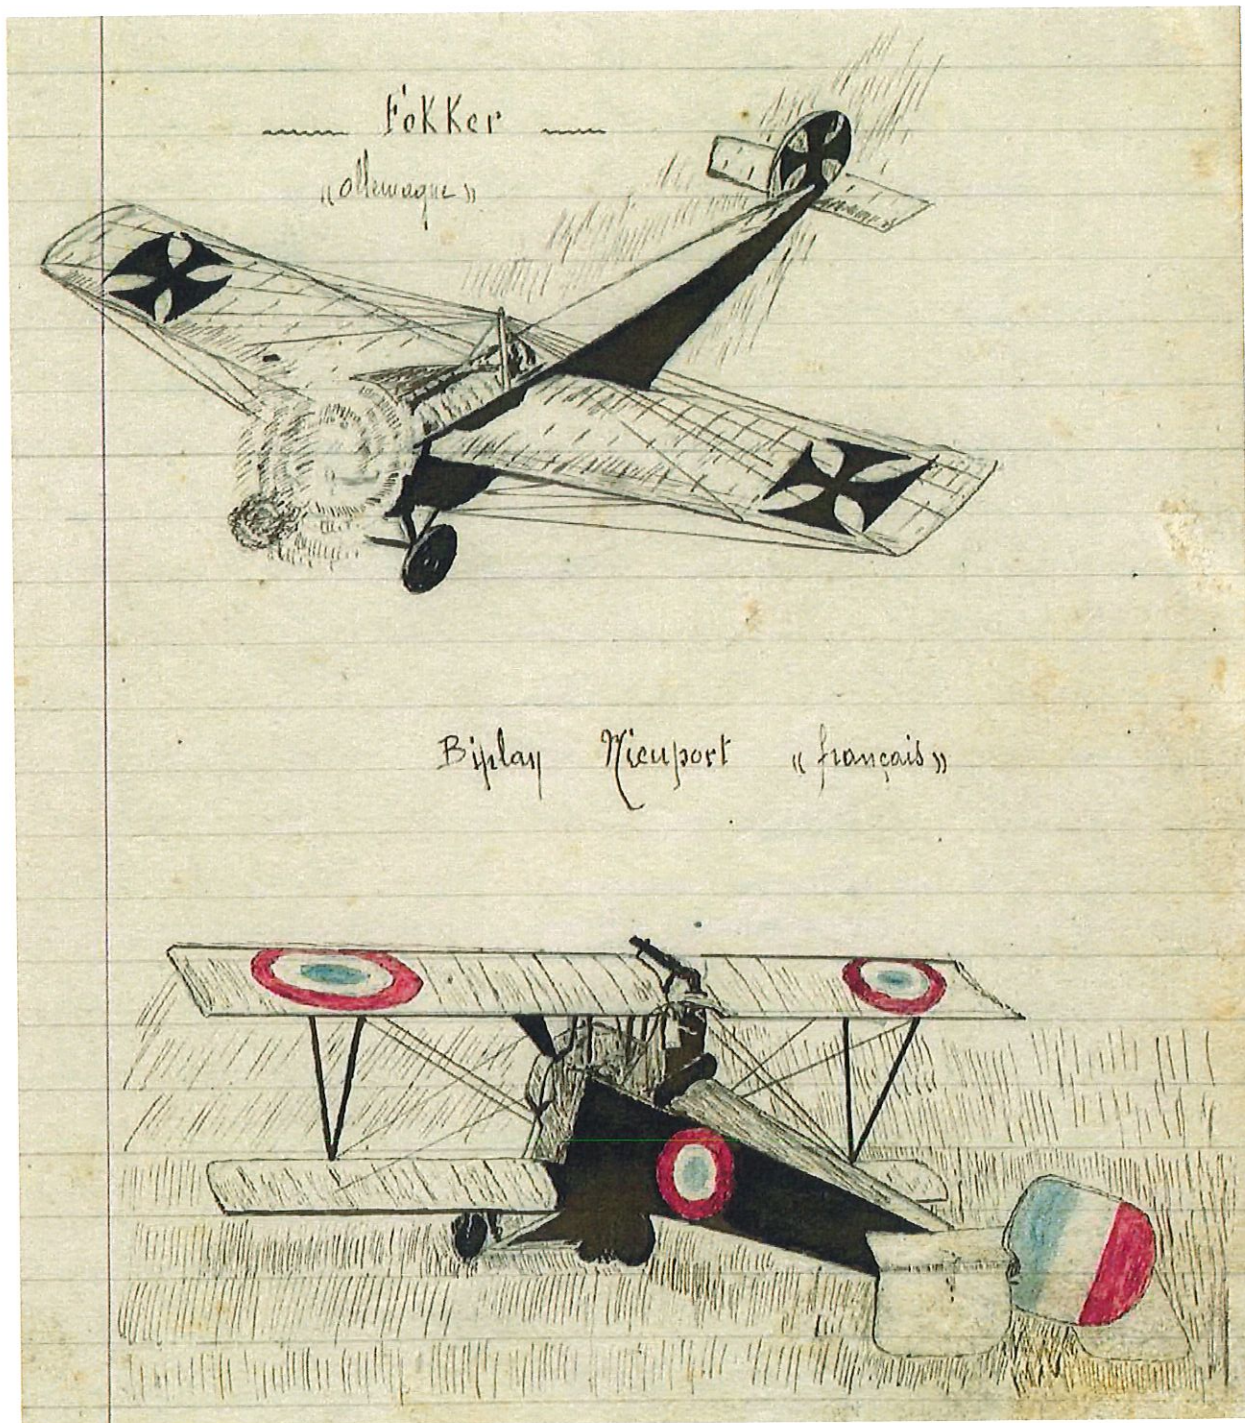 Fokker
"allemagne"
Biplan Nieuport "français"